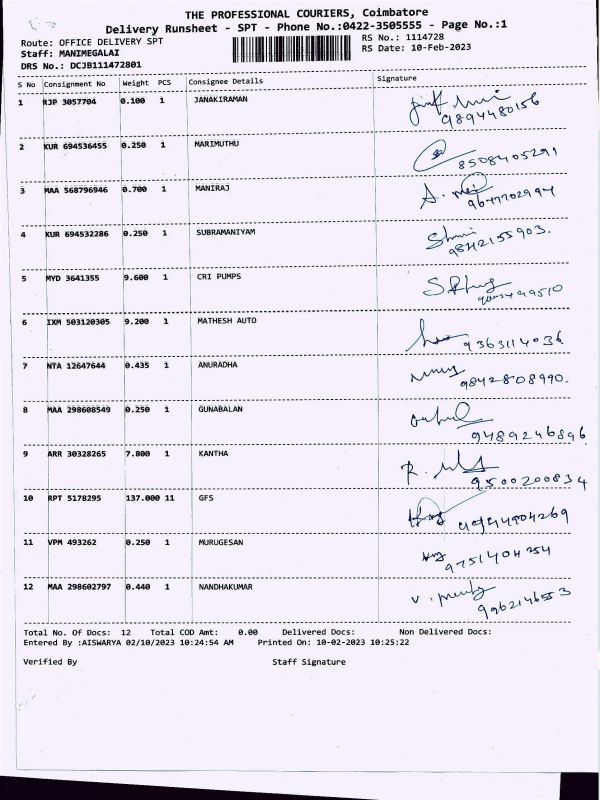 THE PROFESSIONAL COURIERS, Coimbatore
Delivery Runsheet - SPT - Phone No.:0422-3505555 - Page No.:1
Route: OFFICE DELIVERY SPT
RS No.: 1114728
Staff: MANIMEGALAI
RS Date: 10-Feb-2023
DRS No.: DCJB111472801
S No Consignment No Weight PCS Consignee Details Signature
1 RJP 3057704 0.100 1 JANAKIRAMAN
9894480156
2 KUR 694536455 0.250 1 MARIMUTHU
8508405291
3 MAA 568796946 0.700 1 MANIRAJ
9677702994
4 KUR 694532286 0.250 1 SUBRAMANIYAM
9842155903.
5 MYD 3641355 9.600 1 CRI PUMPS
6 IXM 503120305 9.200 1 MATHESH AUTO
9363114036
7 NTA 12647644 0.435 1 ANURADHA
9842808990.
8 MAA 298608549 0.250 1 GUNABALAN
9489246896
9 ARR 30328265 7.800 1 KANTHA
9500200834
10 RPT 5178295 137.000 11 GFS
11 VPM 493262 0.250 1 MURUGESAN
9751404254
12 MAA 298602797 0.440 1 NANDHAKUMAR
9962146553
Total No. Of Docs: 12 Total COD Amt: 0.00 Delivered Docs: Non Delivered Docs:
Entered By :AISWARYA 02/10/2023 10:24:54 AM Printed On: 10-02-2023 10:25:22
Verified By Staff Signature